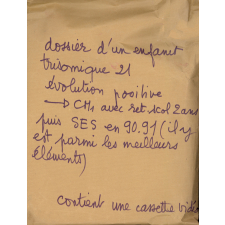 dossier d'un enfant
trisomique 21
évolution positive
→ CM1 avec ret scol 2 ans
puis SES en 90.91 (il y
est parmi les meilleurs
éléments)
contient une cassette vidéo